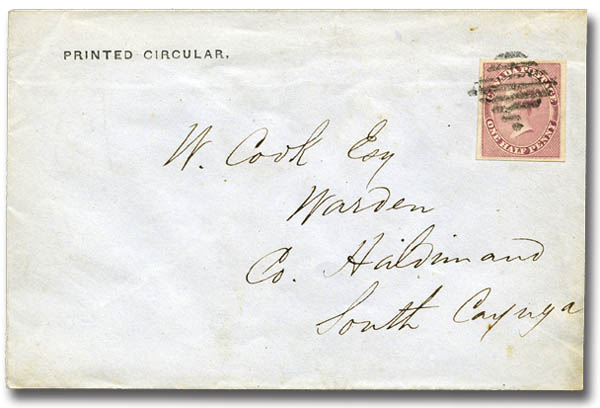 PRINTED CIRCULAR.
CANADA POSTAGE
ONE HALF PENNY
W. Cook Esq
Warden
Co. Haldimand
South Cayuga